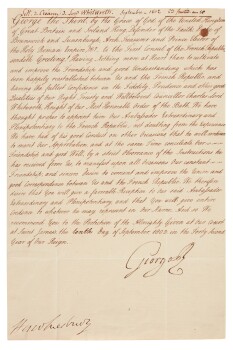 George the Third, by the Grace of God, of the United Kingdom
of Great Britain and Ireland King, Defender of the Faith, Duke of
Brunswick and Lunenburgh, Arch Treasurer and Prince Elector of
the Holy Roman Empire, &c. To the First Consul of the French Republic,
sendeth Greeting! Having nothing more at Heart than to cultivate
and improve the Friendship and good Understanding which
happily established between Us and the French Republic, and
having the fullest confidence in the Fidelity, Prudence and other good
Qualities of Our Right Trusty and Wellbeloved Councillor Charles Lord
Whitworth, Knight of the Most Honourable Order of the Bath, We have
thought proper to appoint him Our Ambassador Extraordinary and
Plenipotentiary to the French Republic, not doubting from the
We have had of his good Conduct on other Occasions that he will
to merit Our Approbation, and at the same Time conciliate Your
Friendship and good Will, by a strict Observance of the Instructions he
has received from Us to
Friendship, and sincere Desire to cement and improve the Union and
good Correspondence between Us and the French Republic. We therefore
desire that You will give a favorable Reception to Our said Ambassador
Extraordinary and Plenipotentiary and that You will give entire
Credence to whatever he may represent in Our Name. And so We
recommend You to the Protection of the Almighty. Given at Our Court at
Saint James's the tenth Day of September 1802 in the Forty Second
Year of Our Reign.
George R
Hawkesbury